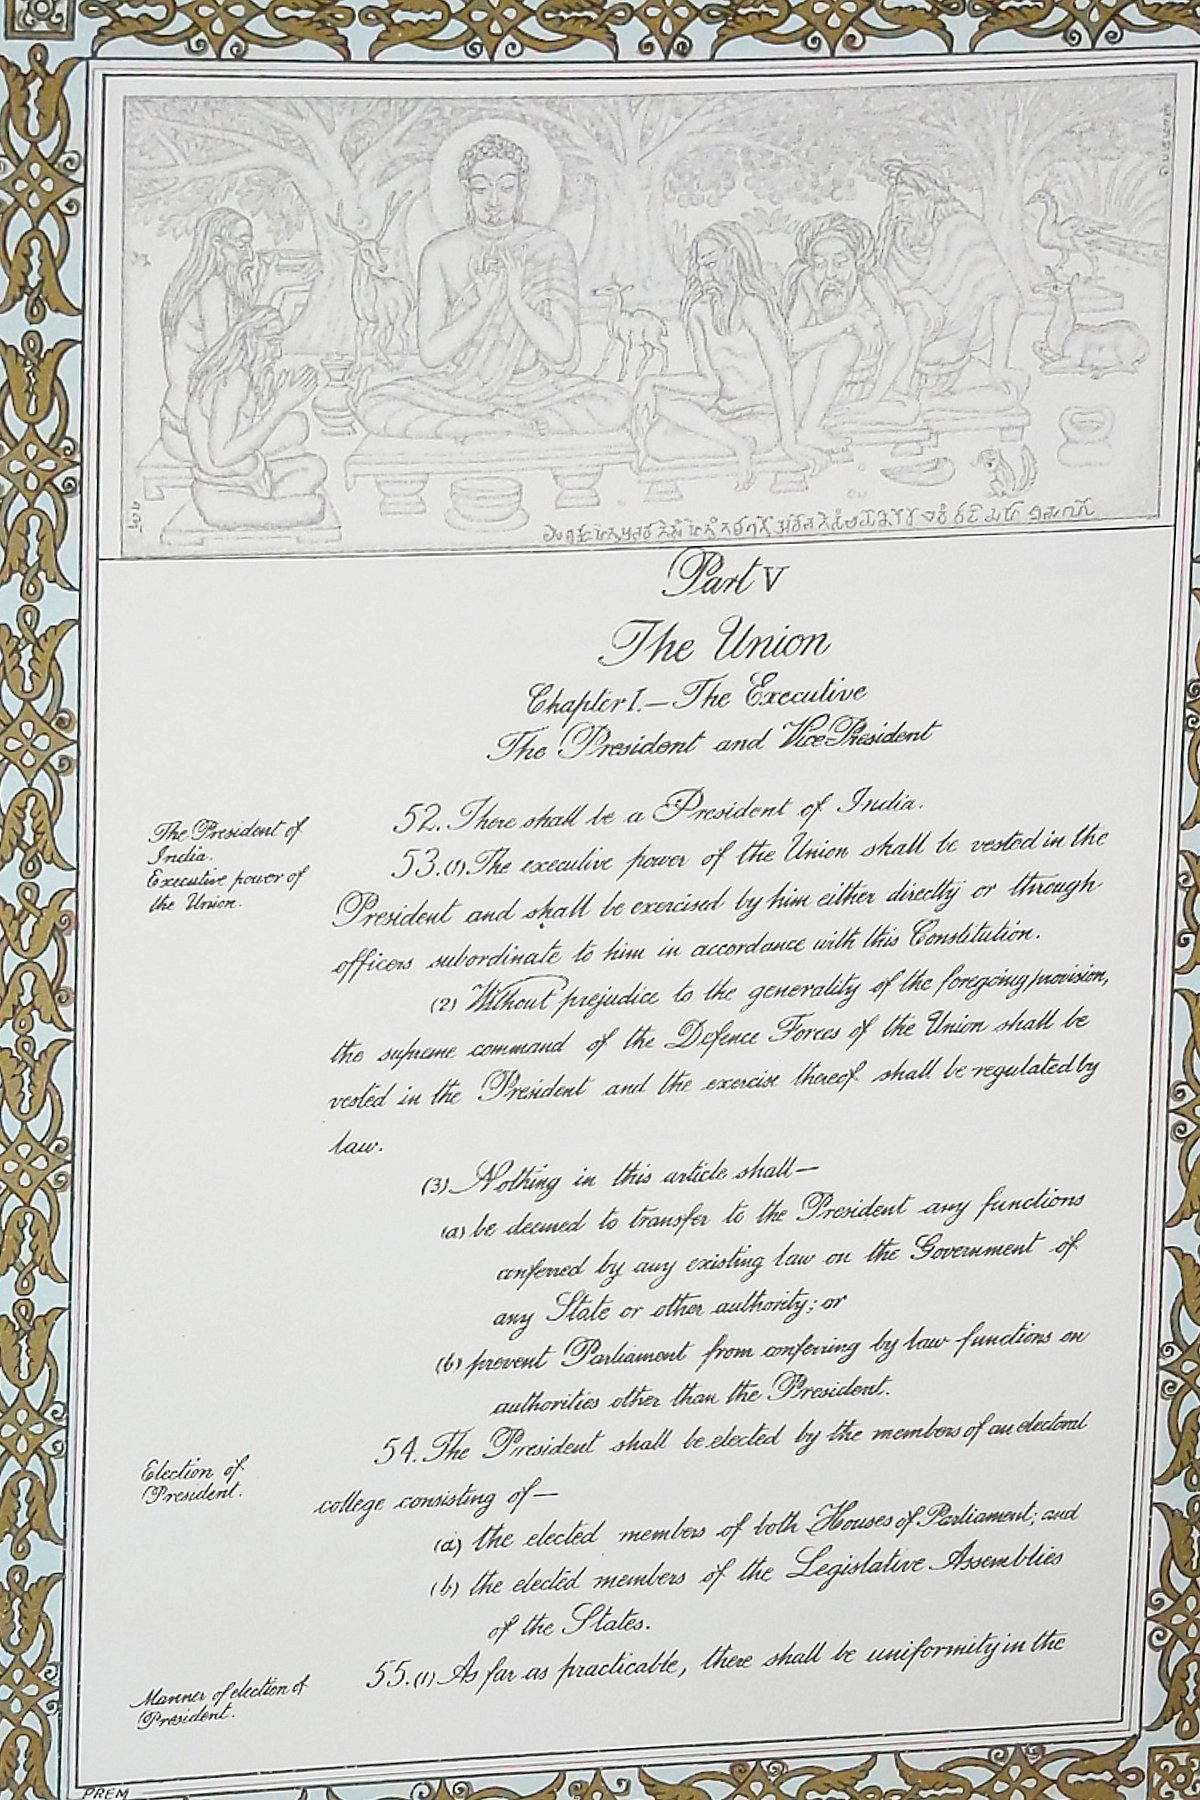 Part V
The Union
Chapter I.—The Executive
The President and Vice-President
The President of
India.
52. There shall be a President of India.
Executive power of
the Union.
53. (1) The executive power of the Union shall be vested in the
President and shall be exercised by him either directly or through
officers subordinate to him in accordance with this Constitution.
(2) Without prejudice to the generality of the foregoing provision,
the supreme command of the Defence Forces of the Union shall be
vested in the President and the exercise thereof shall be regulated by
law.
(3) Nothing in this article shall—
(a) be deemed to transfer to the President any functions
conferred by any existing law on the Government of
any State or other authority; or
(b) prevent Parliament from conferring by law functions on
authorities other than the President.
Election of
President.
54. The President shall be elected by the members of an electoral
college consisting of—
(a) the elected members of both Houses of Parliament; and
(b) the elected members of the Legislative Assemblies
of the States.
Manner of election of
President.
55. (1) As far as practicable, there shall be uniformity in the
PREM